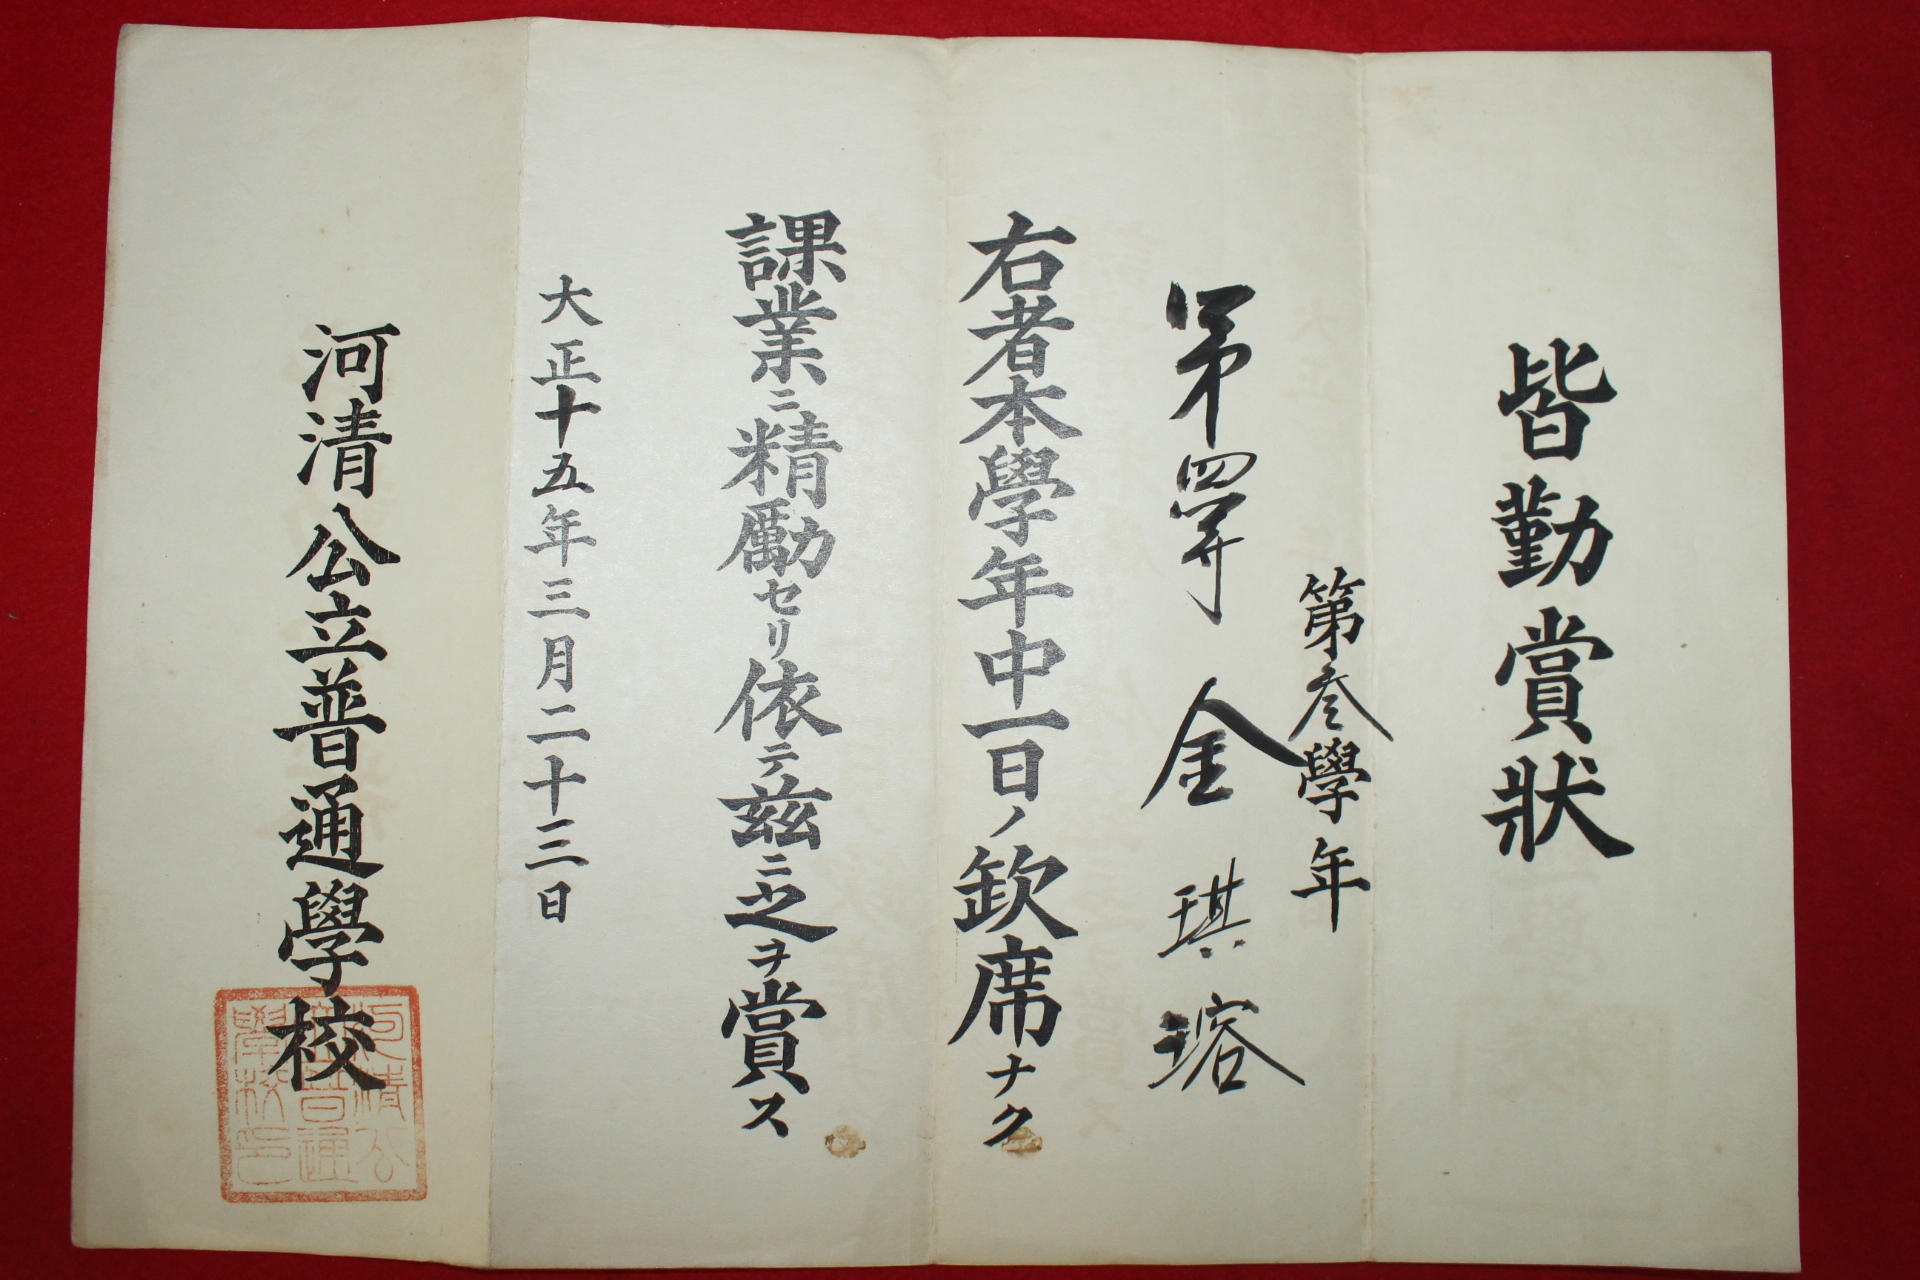 皆勤賞狀
第叄學年
第四學年 金琪瑢
右者本學年中一日ノ欽席ナク
課業ニ精勵セリ依テ玆ニ之ヲ賞ス
大正十五年三月二十三日
河清公立普通學校
河清公立普通學校印